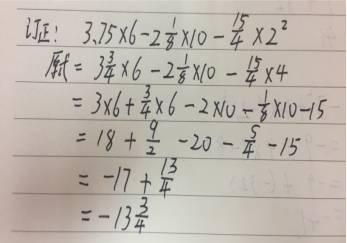 订正: 3.75×6-2 1/8×10-15/4×2²
原式= 3 3/4×6-2 1/8×10-15/4×4
= 3×6+3/4×6-2×10-1/8×10-15
= 18+9/2-20-5/4-15
= -17+13/4
= -13 3/4